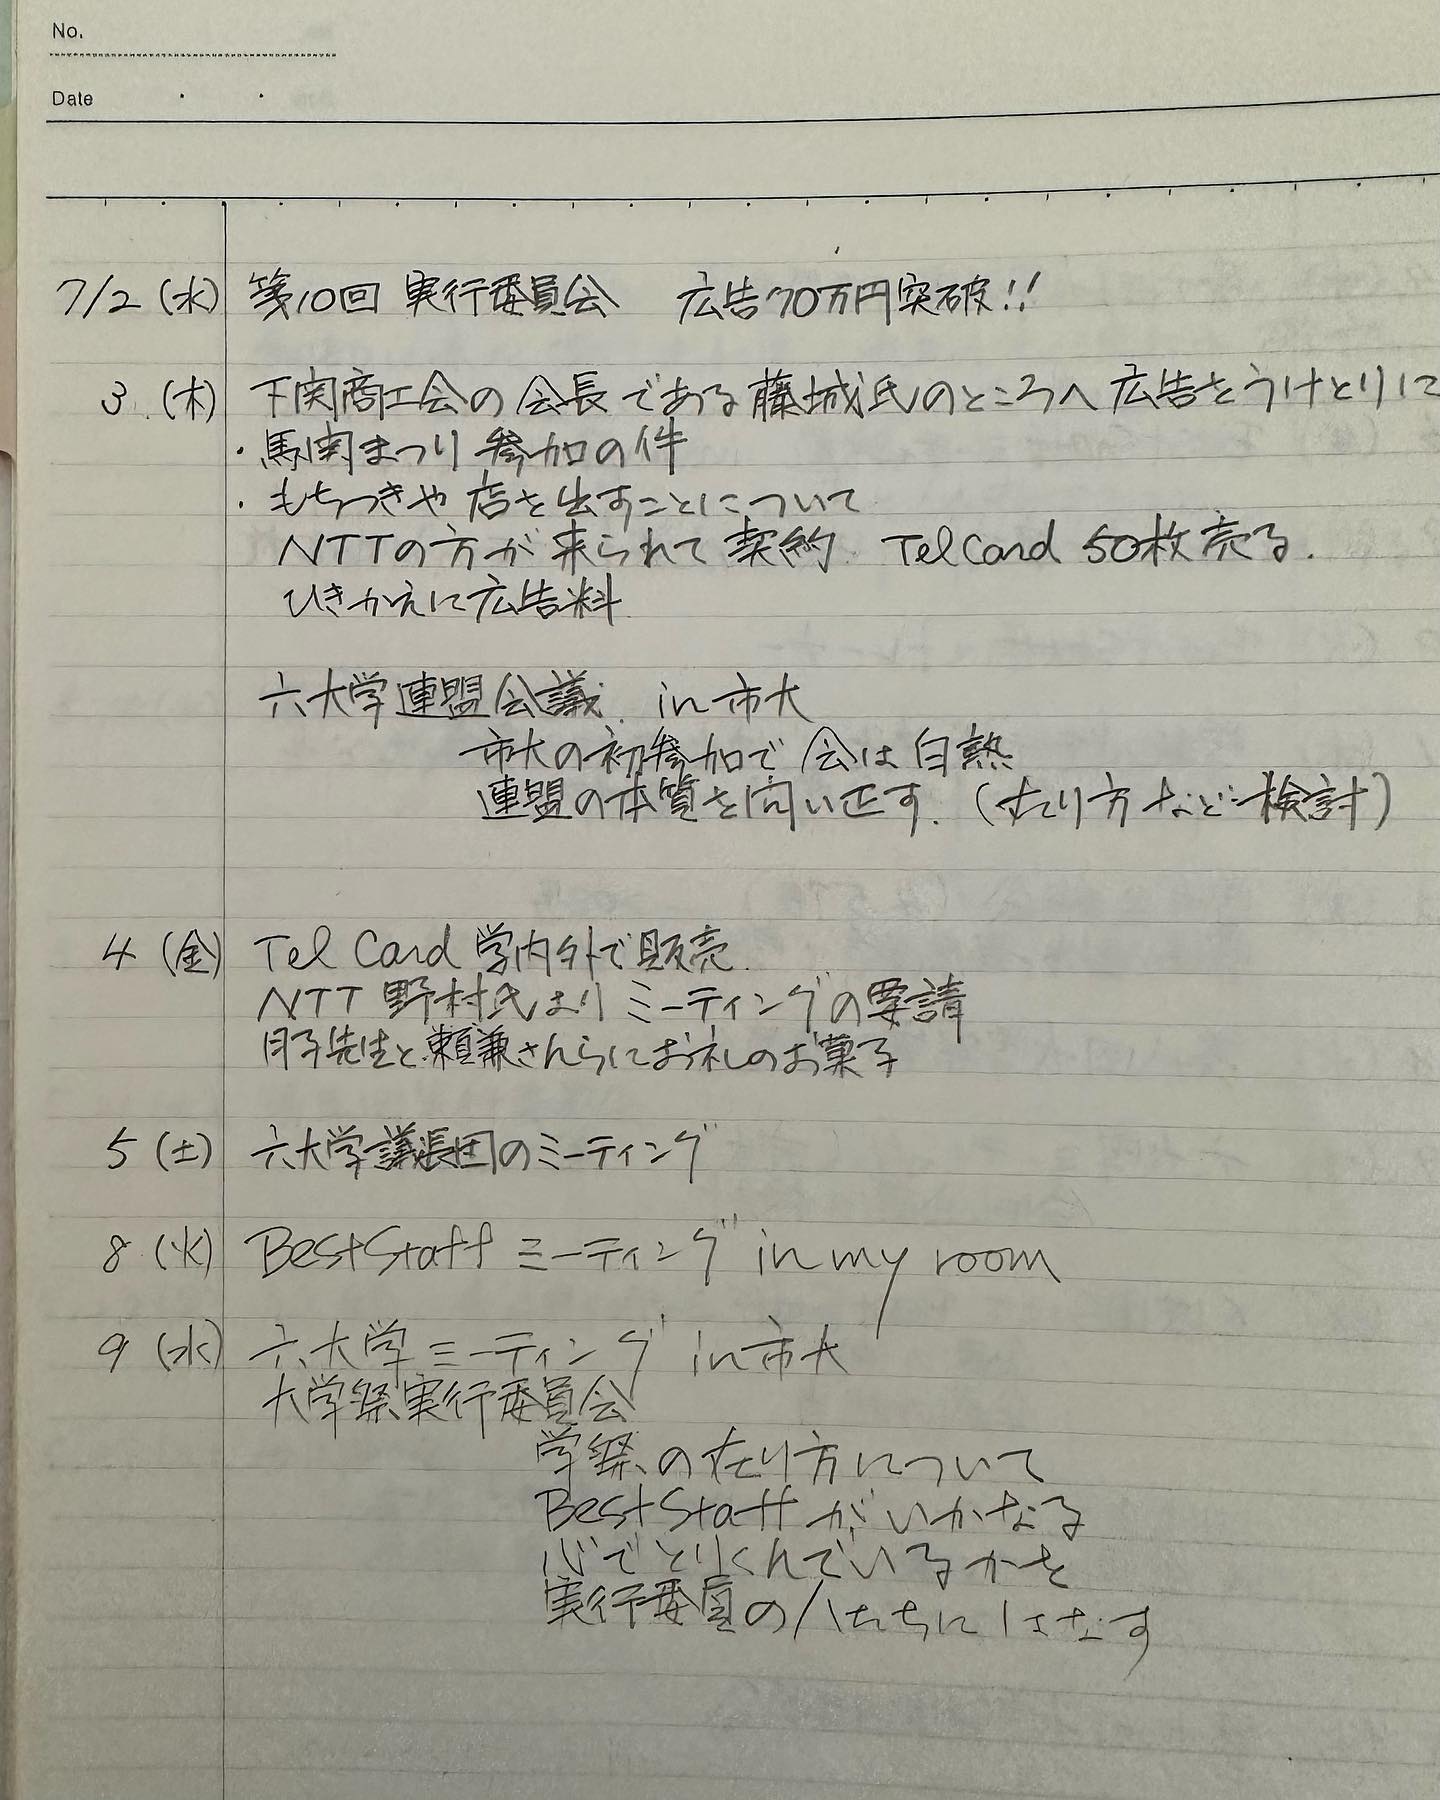 No.
Date
7/2 (水) 第10回 実行委員会 広告70万円突破!!
3 (木) 下関商工会の会長である藤城氏のところへ広告をうけとりに
・馬関まつり参加の件
・もちつきや店を出すことについて
NTTの方が来られて契約. Tel Card 50枚売る.
ひきかえに広告料
六大学連盟会議. in 市大
市大の初参加で会は白熱
連盟の本質を問い正す. (在り方など検討)
4 (金) Tel Card 学内外で販売.
NTT 野村氏よりミーティングの要請
先生と頼兼さんらにお礼のお菓子
5 (土) 六大学議長団のミーティング
8 (火) Best Staff ミーティング in my room
9 (水) 六大学ミーティング in 市大
大学祭実行委員会
学祭の在り方について
Best Staff がいかなる
心でとりくんでいるかを
実行委員の人たちにはなす